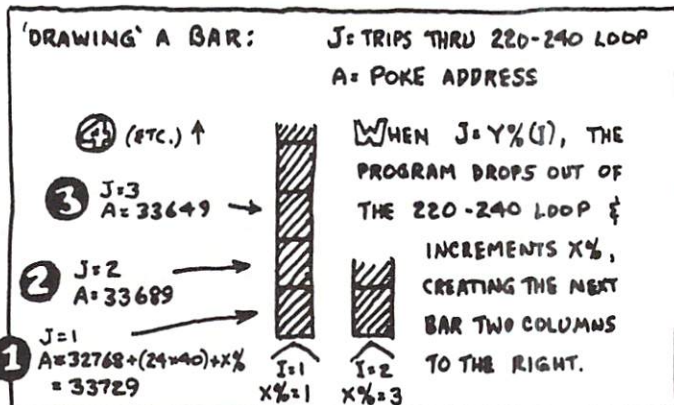 'DRAWING' A BAR:
J= TRIPS THRU 220-240 LOOP
A= POKE ADDRESS
4 (ETC.) ↑
3 J=3
A=33649 →
2 J=2
A=33689
1 J=1
A=32768+(24*40)+X%
=33729
I=1
X%=1
I=2
X%=3
WHEN J=Y%(I), THE
PROGRAM DROPS OUT OF
THE 220-240 LOOP &
INCREMENTS X%,
CREATING THE NEXT
BAR TWO COLUMNS
TO THE RIGHT.